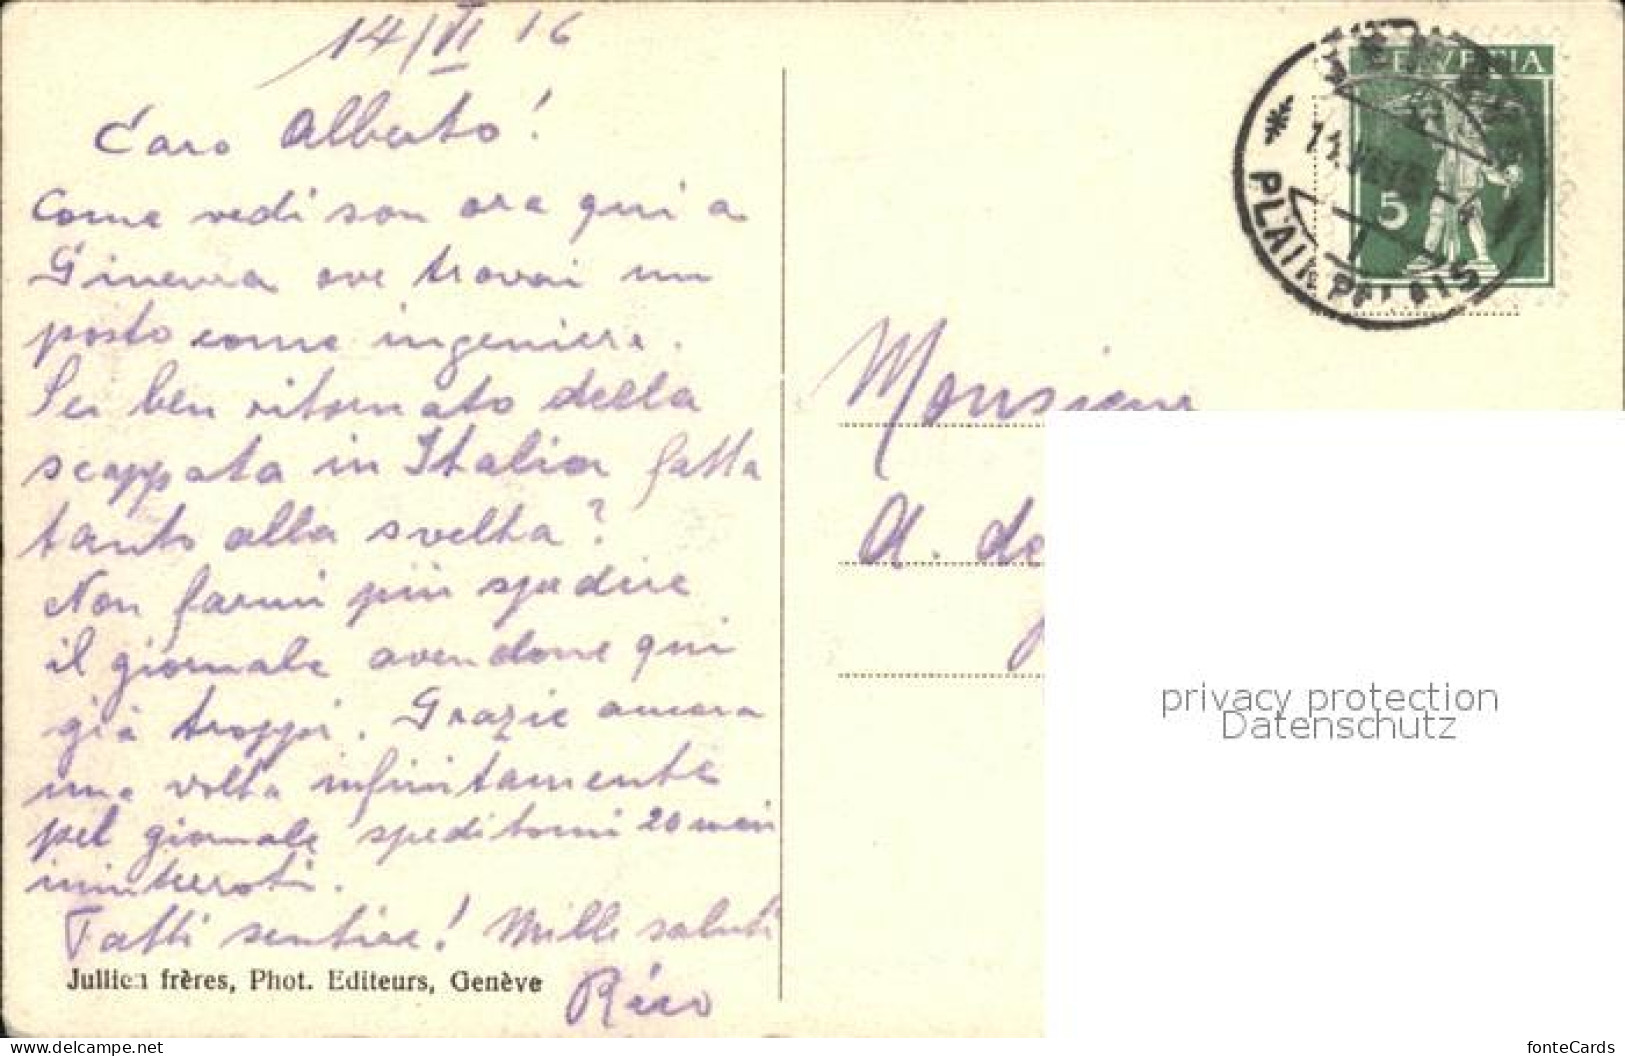 14/VI 16
Caro Alberto!
Come vedi son ora qui a
Ginevra ove trovai un
posto come ingeniere.
Sei ben ritornato della
scappata in Italia fatta
tanto alla svelta?
Non farmi più spedire
il giornale avendone qui
già troppi. Grazie ancora
una volta infinitamente
pel giornale speditomi 20 mesi
ininterroti.
Fatti sentire! Mille saluti
Rico
Jullien frères, Phot. Editeurs, Genève
HELVETIA
5
PLAINPALAIS
Monsieur
A. de
privacy protection
Datenschutz
www.delcampe.net
fonteCards